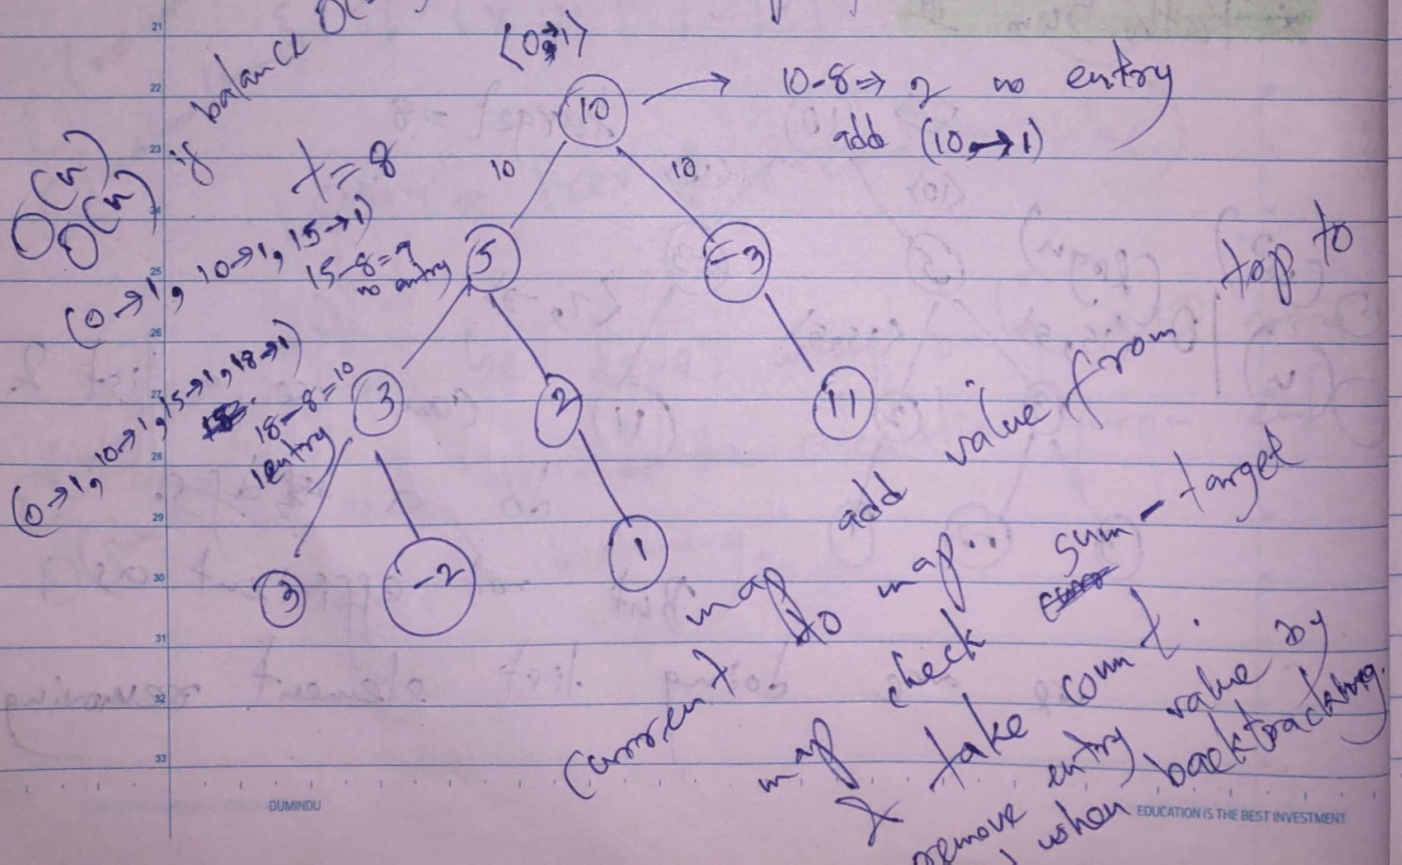 21
22
23
24
25
26
27
28
29
30
31
32
33
if balance
O(n)
O(n)
t=8
(0→1)
10
10-8⇒2 no entry
add (10→1)
10
10
5
-3
(0→1, 10→1, 15→1)
15-8=7
no entry
3
2
11
(0→1, 10→1, 15→1, 18→1)
18-8=10
1 entry
3
-2
1
add value from top to
current map to map..
map check sum - target
& take count.
remove entry value by
when backtracking.
DUMINDU
EDUCATION IS THE BEST INVESTMENT